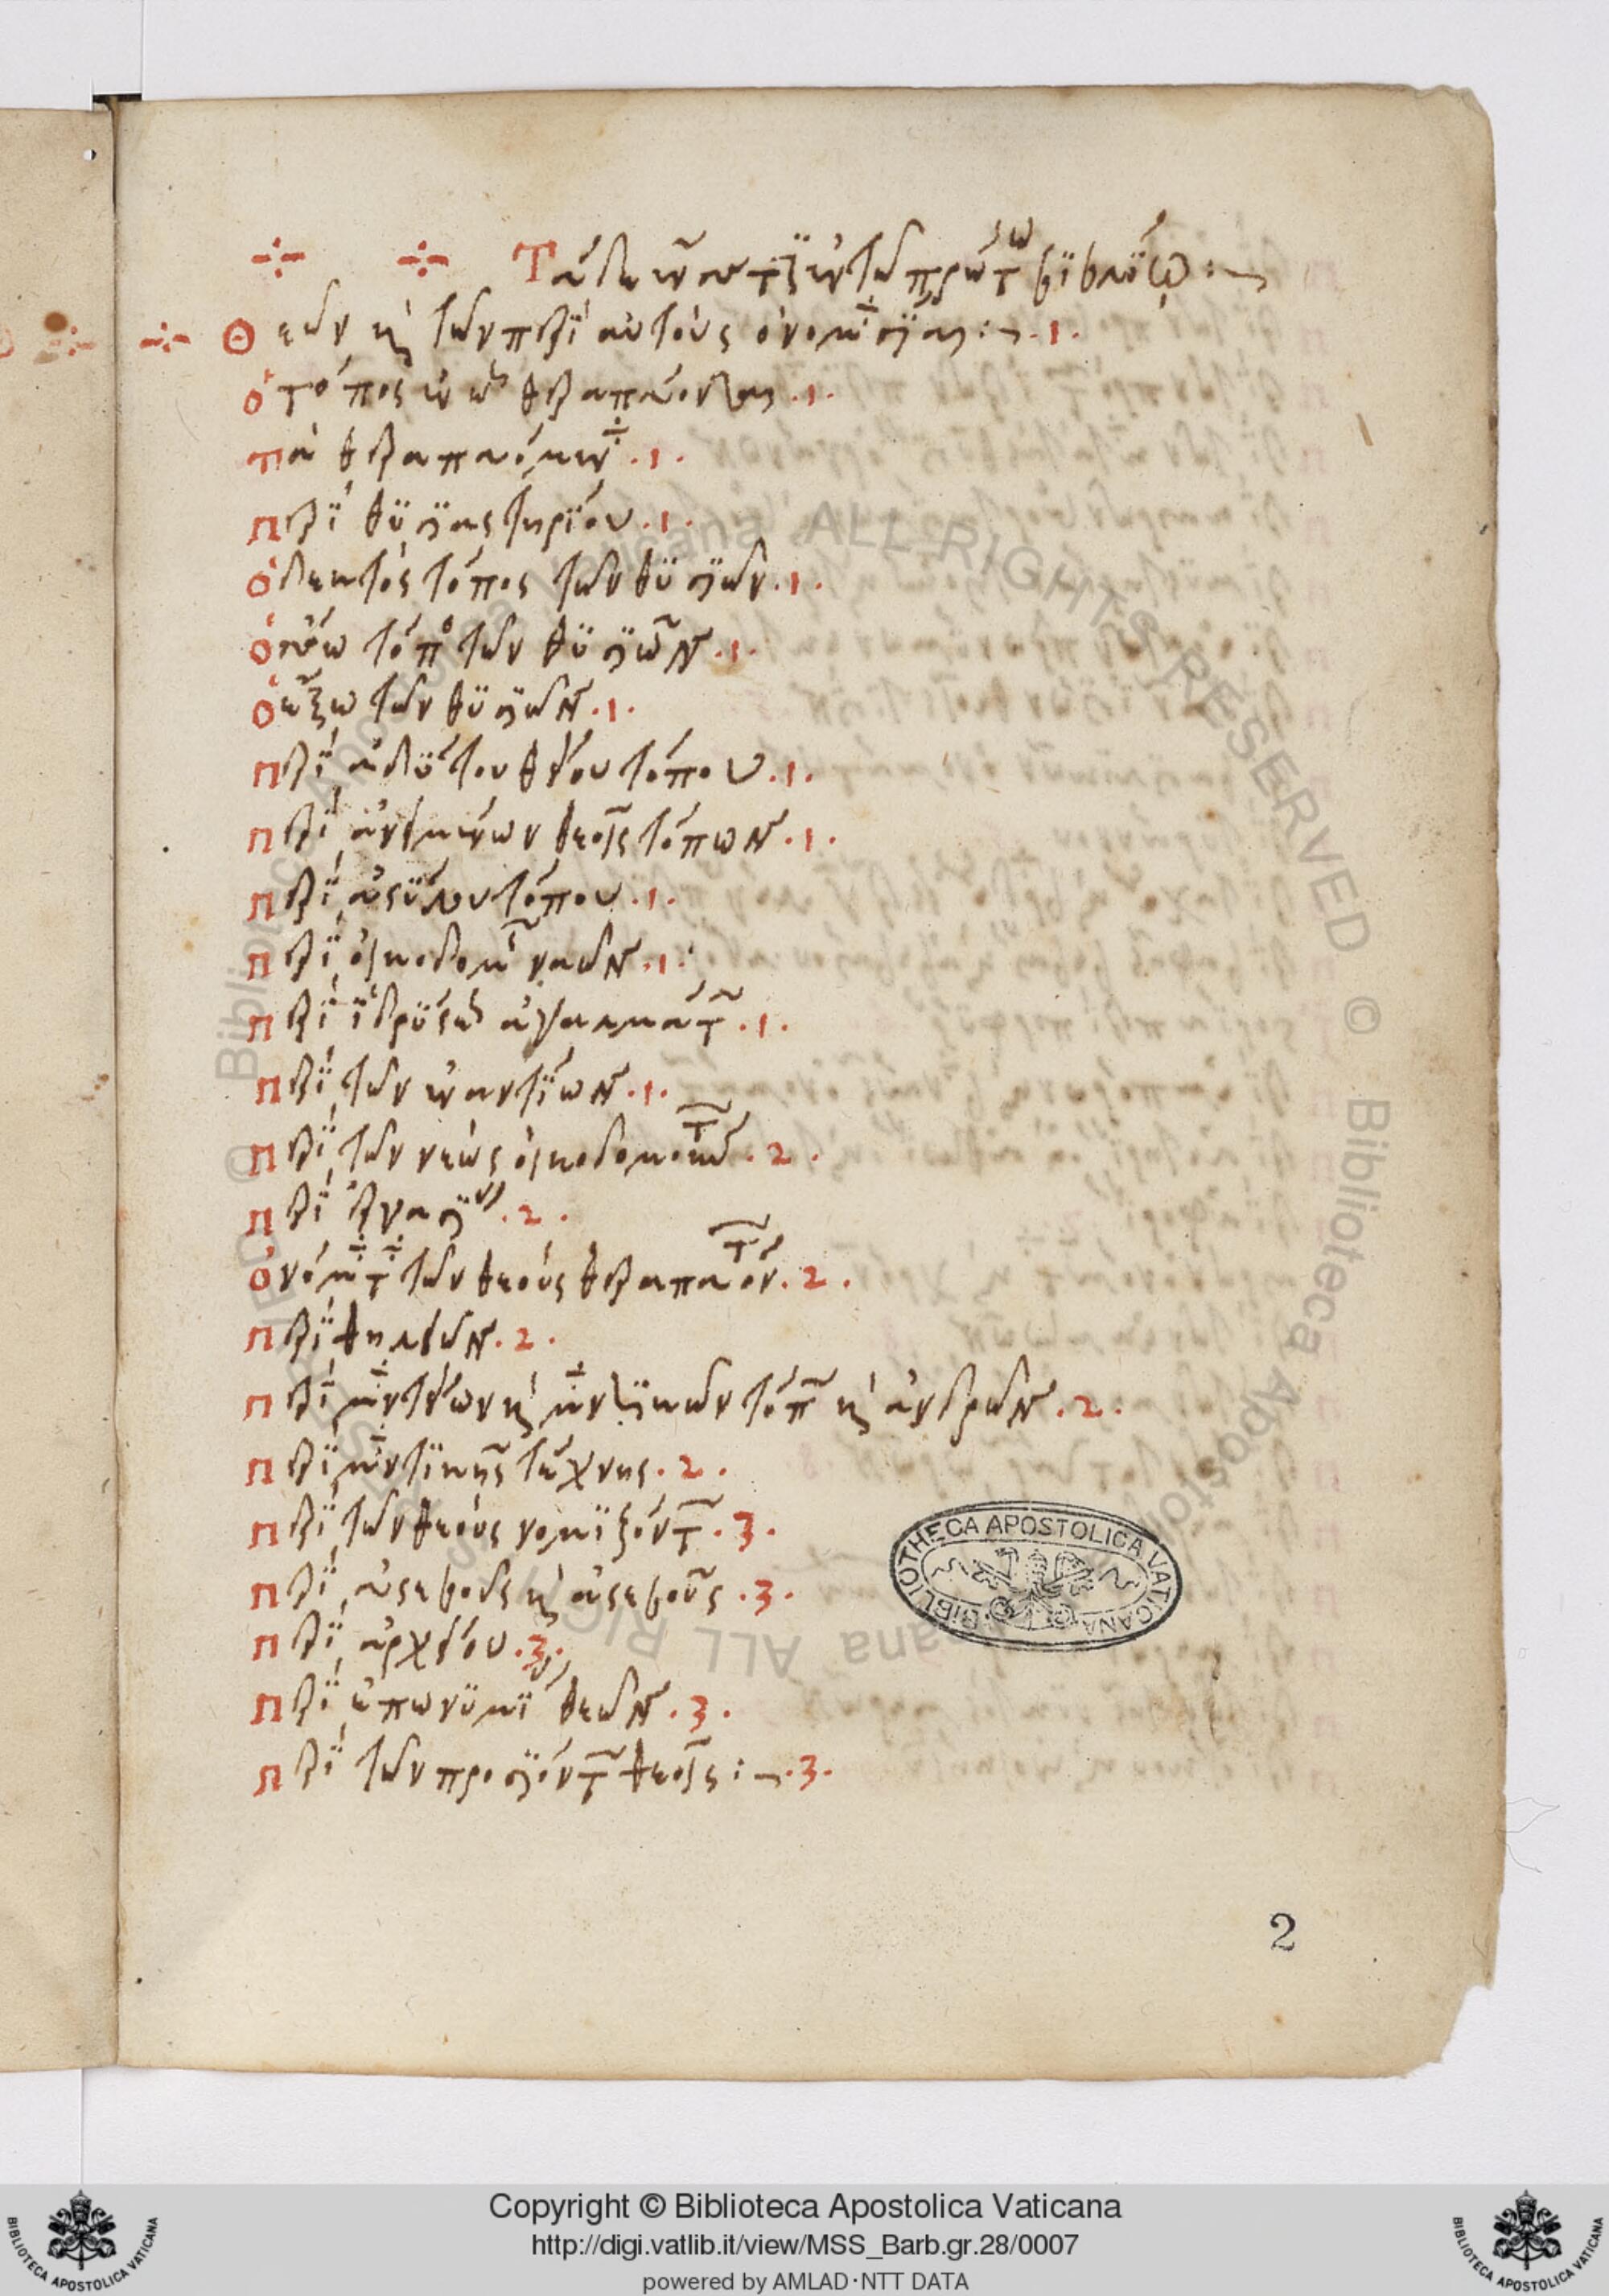 Τάδε ἔνεστιν ἐν τῶ πρώτω βιβλίω :~
Θεῶν κ τῶν περὶ αὐτοὺς ὀνομασίαι :~ .1.
ὁ τόπος ἐν ὧ θεραπεύονται .1.
πᾶ θεραπεύομεν .1.
περὶ θυσιαστηρίου .1.
ὁ δεκτὸς τόπος τῶν θυσιῶν .1.
ὁ εἴσω τόπος τῶν θυσιῶν .1.
ὁ ἔξω τῶν θυσιῶν .1.
περὶ ἀδύτου θείου τόπου .1.
περὶ ἀνειμένων θεοῖς τόπων .1.
περὶ ἀσύλου τόπου .1.
περὶ οἰκοδομῆς ναῶν .1.
περὶ ἱδρύσεως ἀγαλμάτων .1.
περὶ τῶν ἐναντίων .1.
περὶ τῶν νεὼς οἰκοδομούντων .2.
περὶ ἐργασίας .2.
ὀνόματα τῶν θεοὺς θεραπευόντων .2.
περὶ θηλειῶν .2.
περὶ μαντείων κ μαντικῶν τόπων κ ἀνδρῶν .2.
περὶ μαντικῆς τέχνης .2.
περὶ τῶν θεοὺς νομιζόντων .3.
περὶ εὐσεβοῦς κ ἀσεβοῦς .3.
περὶ ἀρχείου .3.
περὶ ἐπωνυμίας θεῶν .3.
περὶ τῶν προσιόντων θεοῖς :~ .3.
BIBLIOTHECA APOSTOLICA VATICANA
2
© Biblioteca Apostolica Vaticana ALL RIGHTS RESERVED
Copyright © Biblioteca Apostolica Vaticana
http://digi.vatlib.it/view/MSS_Barb.gr.28/0007
powered by AMLAD·NTT DATA
BIBLIOTECA APOSTOLICA VATICANA
BIBLIOTECA APOSTOLICA VATICANA